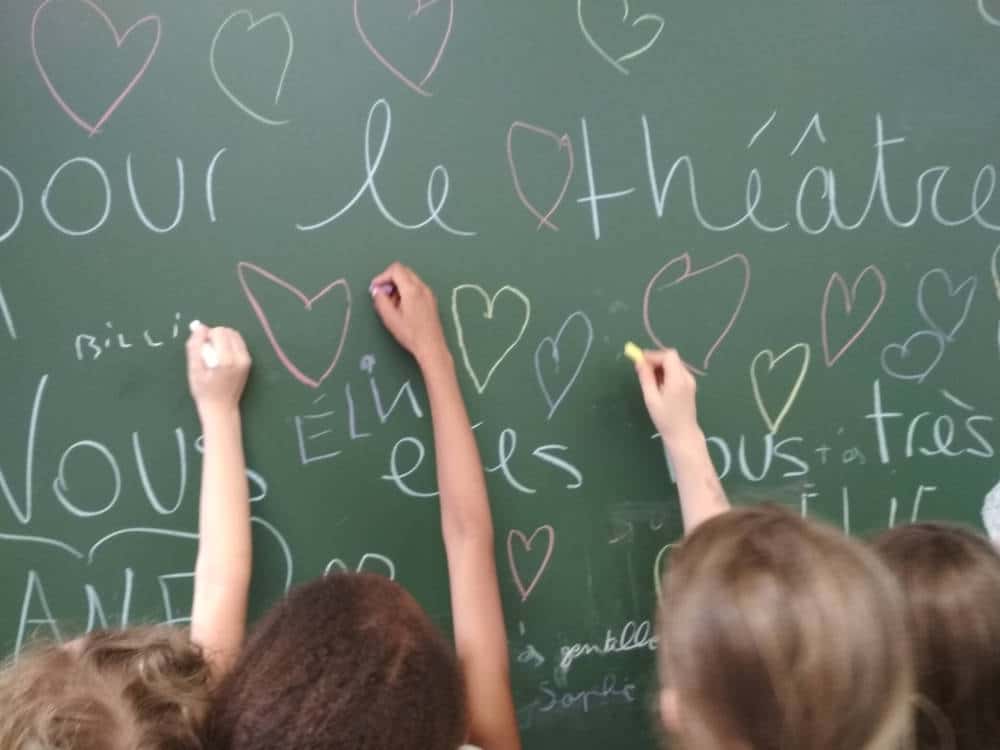 pour le théâtre
BiLLi
ÉLiN
Vous êtes tous très
ANE
gentille
Sophie